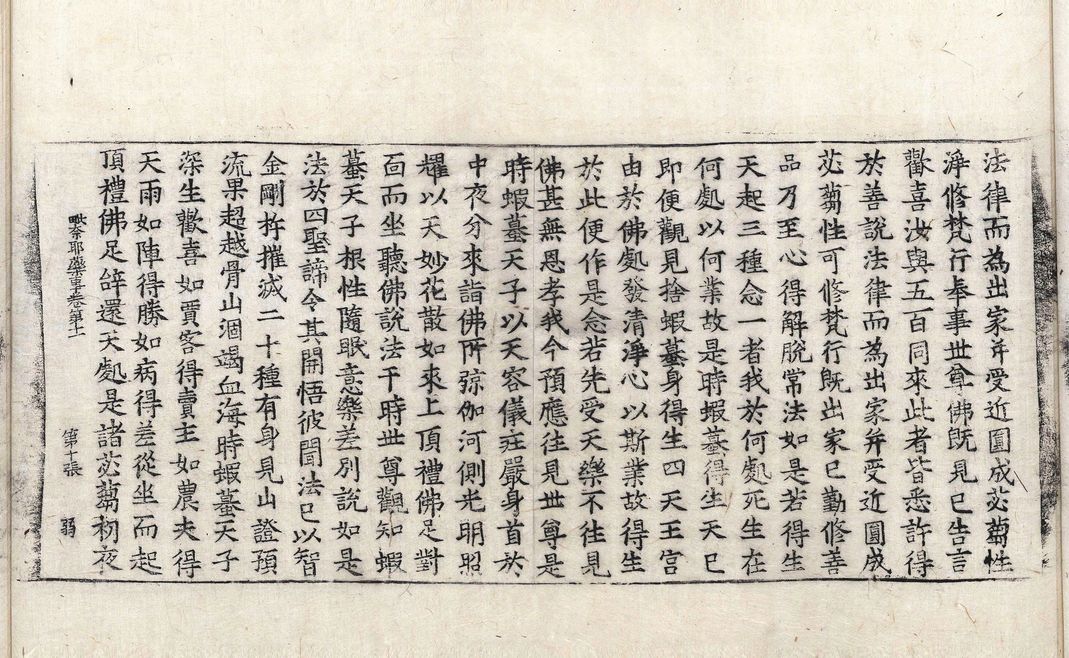 法律而為出家并受近圓成苾蒭性
淨修梵行奉事世尊佛既見已告言
歡喜汝與五百同來此者皆悉許得
於善說法律而為出家并受近圓成
苾蒭性可修梵行既出家已勤修善
品乃至心得解脫常法如是若得生
天起三種念一者我於何處死生在
何處以何業故是時蝦蟇得生天已
即便觀見捨蝦蟇身得生四天王宮
由於佛處發清淨心以斯業故得生
於此便作是念若先受天樂不往見
佛甚無恩孝我今預應往見世尊是
時蝦蟇天子以天容儀莊嚴身首於
中夜分來詣佛所弶伽河側光明照
耀以天妙花散如來上頂禮佛足對
面而坐聽佛說法于時世尊觀知蝦
蟇天子根性隨眠意樂差別說如是
法於四聖諦令其開悟彼聞法已以智
金剛杵摧滅二十種有身見山證預
流果超越骨山涸竭血海時蝦蟇天子
深生歡喜如賈客得賣主如農夫得
天雨如陣得勝如病得差從坐而起
頂禮佛足辞還天處是諸苾蒭初夜
毗奈耶藥事卷第十一 第十張 弱